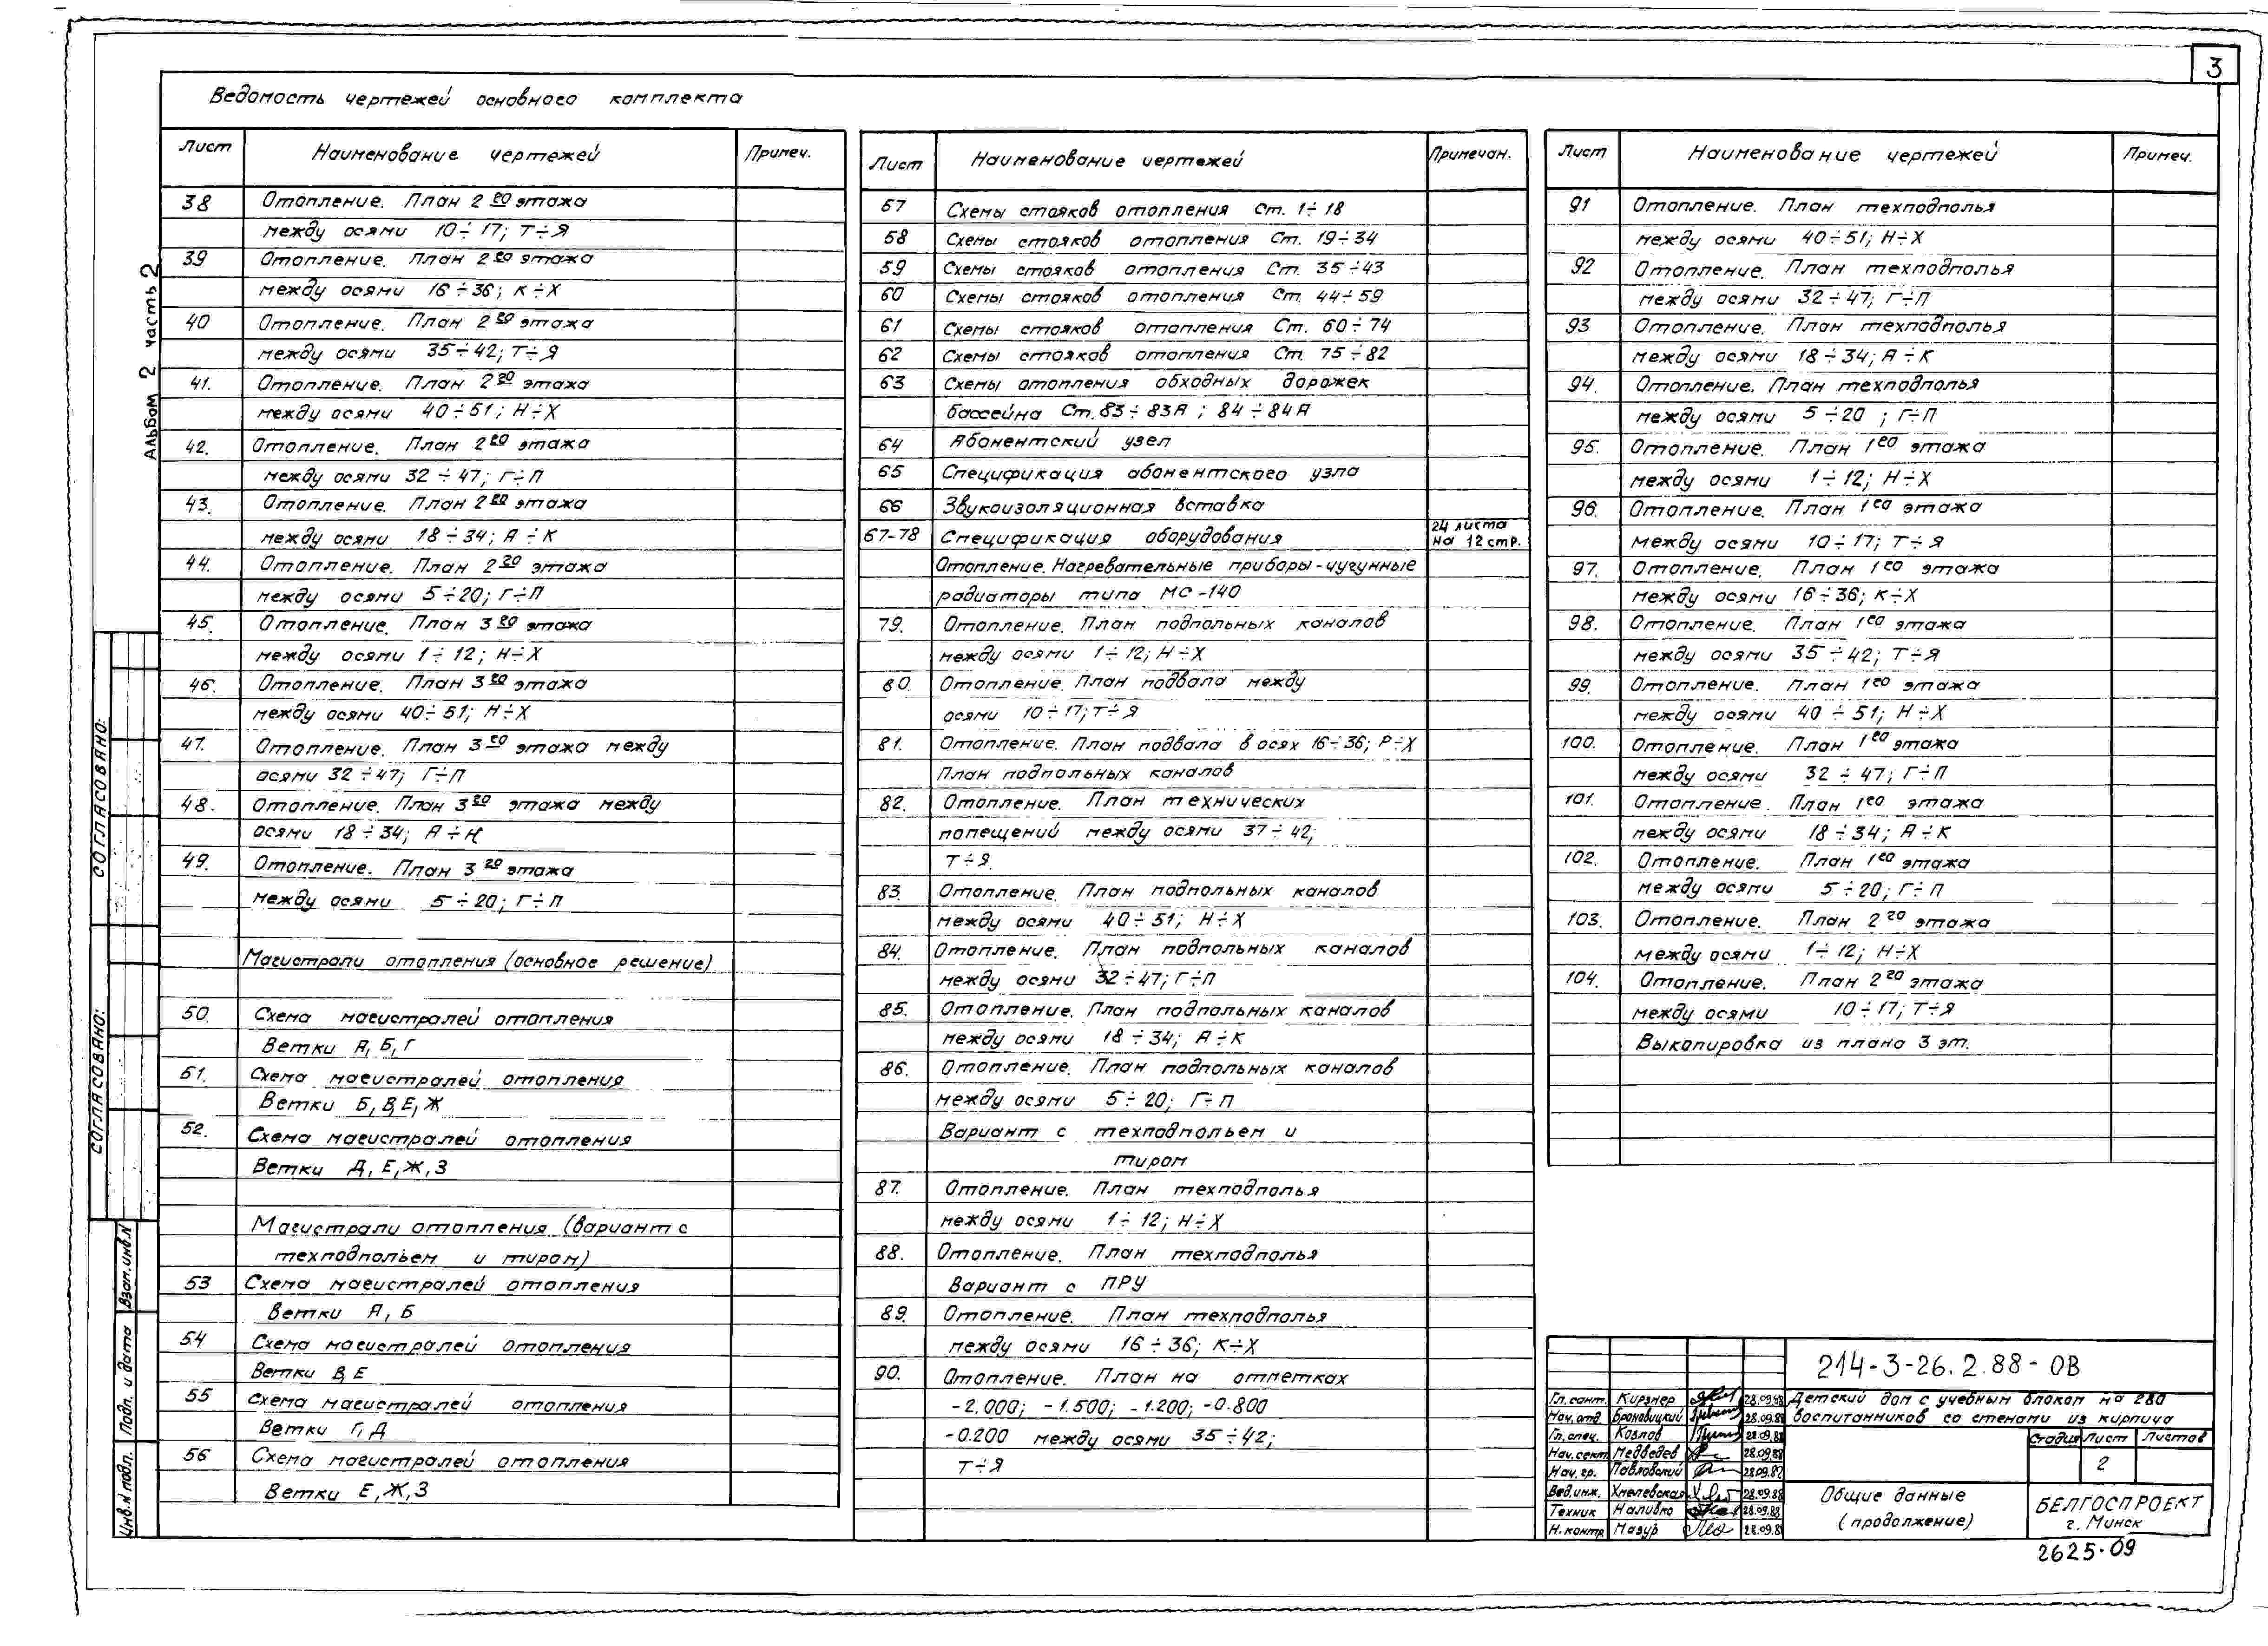 3
Ведомость чертежей основного комплекта
Лист Наименование чертежей Примеч.
38 Отопление. План 2го этажа
между осями 10÷17; Т÷Я
39 Отопление. План 2го этажа
между осями 16÷36; К÷Х
40 Отопление. План 2го этажа
между осями 35÷42; Т÷Я
41. Отопление. План 2го этажа
между осями 40÷51; Н÷Х
42. Отопление. План 2го этажа
между осями 32÷47; Г÷П
43. Отопление. План 2го этажа
между осями 18÷34; А÷К
44. Отопление. План 2го этажа
между осями 5÷20; Г÷П
45. Отопление. План 3го этажа
между осями 1÷12; Н÷Х
46. Отопление. План 3го этажа
между осями 40÷51; Н÷Х
47. Отопление. План 3го этажа между
осями 32÷47; Г÷П
48. Отопление. План 3го этажа между
осями 18÷34; А÷К
49. Отопление. План 3го этажа
между осями 5÷20; Г÷П
Магистрали отопления (основное решение)
50. Схема магистралей отопления
Ветки А, Б, Г
51. Схема магистралей отопления
Ветки Б, В, Е, Ж
52. Схема магистралей отопления
Ветки Д, Е, Ж, З
Магистрали отопления (вариант с
техподпольем и тиром)
53 Схема магистралей отопления
Ветки А, Б
54 Схема магистралей отопления
Ветки В, Е
55 Схема магистралей отопления
Ветки Г, Д
56 Схема магистралей отопления
Ветки Е, Ж, З
Лист Наименование чертежей Примечан.
57 Схемы стояков отопления Ст. 1÷18
58 Схемы стояков отопления Ст. 19÷34
59 Схемы стояков отопления Ст. 35÷43
60 Схемы стояков отопления Ст. 44÷59
61 Схемы стояков отопления Ст. 60÷74
62 Схемы стояков отопления Ст. 75÷82
63 Схемы отопления обходных дорожек
бассейна Ст. 83÷83А; 84÷84А
64 Абонентский узел
65 Спецификация абонентского узла
66 Звукоизоляционная вставка
67-78 Спецификация оборудования 24 листа на 12 стр.
Отопление. Нагревательные приборы-чугунные
радиаторы типа МС-140
79. Отопление. План подпольных каналов
между осями 1÷12; Н÷Х
80. Отопление. План подвала между
осями 10÷17; Т÷Я
81. Отопление. План подвала в осях 16÷36; Р÷Х
План подпольных каналов
82. Отопление. План технических
помещений между осями 37÷42;
Т÷Я.
83. Отопление. План подпольных каналов
между осями 40÷51; Н÷Х
84. Отопление. План подпольных каналов
между осями 32÷47; Г÷П
85. Отопление. План подпольных каналов
между осями 18÷34; А÷К
86. Отопление. План подпольных каналов
между осями 5÷20; Г÷П
Вариант с техподпольем и
тиром
87. Отопление. План техподполья
между осями 1÷12; Н÷Х
88. Отопление. План техподполья
Вариант с ПРУ
89. Отопление. План техподполья
между осями 16÷36; К÷Х
90. Отопление. План на отметках
-2.000; -1.500; -1.200; -0.800
-0.200 между осями 35÷42;
Т÷Я
Лист Наименование чертежей Примеч.
91 Отопление. План техподполья
между осями 40÷51; Н÷Х
92 Отопление. План техподполья
между осями 32÷47; Г÷П
93 Отопление. План техподполья
между осями 18÷34; А÷К
94. Отопление. План техподполья
между осями 5÷20; Г÷П
95. Отопление. План 1го этажа
между осями 1÷12; Н÷Х
96. Отопление. План 1го этажа
между осями 10÷17; Т÷Я
97. Отопление. План 1го этажа
между осями 16÷36; К÷Х
98. Отопление. План 1го этажа
между осями 35÷42; Т÷Я
99. Отопление. План 1го этажа
между осями 40÷51; Н÷Х
100. Отопление. План 1го этажа
между осями 32÷47; Г÷П
101. Отопление. План 1го этажа
между осями 18÷34; А÷К
102. Отопление. План 1го этажа
между осями 5÷20; Г÷П
103. Отопление. План 2го этажа
между осями 1÷12; Н÷Х
104. Отопление. План 2го этажа
между осями 10÷17; Т÷Я
Выкопировка из плана 3 эт.
214-3-26.2.88-ОВ
Гл. сант. Кирзнер 28.09.88
Нач. отд. Броновицкий 28.09.88
Гл. спец. Козлов 28.09.88
Нач. сект. Медведев 28.09.88
Нач. гр. Павловский 28.09.88
Вед. инж. Хмелевская 28.09.88
Техник Наливко 28.09.88
Н. контр. Мазур 28.09.8
Детский дом с учебным блоком на 280
воспитанников со стенами из кирпича
Стадия Лист Листов
2
Общие данные
(продолжение)
БЕЛГОСПРОЕКТ
г. Минск
2625-09
Альбом 2 часть 2
СОГЛАСОВАНО:
СОГЛАСОВАНО:
Взам. инв. N
Подп. и дата
Инв. N подл.